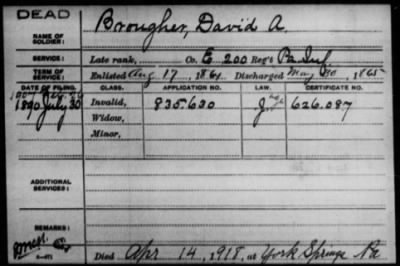 DEAD
NAME OF SOLDIER: Brougher, David A.
SERVICE: Late rank, Co. E 200 Reg't Pa. Inf.
TERM OF SERVICE: Enlisted Aug 17, 1864 Discharged May 30, 1865
DATE OF FILING. CLASS. APPLICATION NO. LAW. CERTIFICATE NO.
1890 July 30 Invalid, 835.630 626.087
Widow,
Minor,
ADDITIONAL SERVICES:
REMARKS:
Died Apr 14, 1918, at York Springs Pa